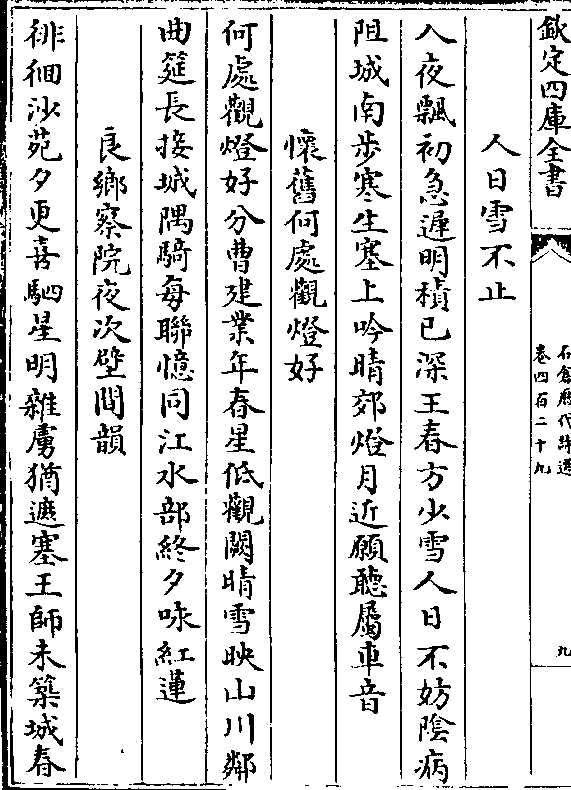 欽定四庫全書
石倉歷代詩選
卷四百二十九
九
人日雪不止
入夜飄初急遲明積已深王春方少雪人日不妨陰病
阻城南步寒生塞上吟晴郊燈月近願聽屬車音
懷舊何處觀燈好
何處觀燈好分曹建業年春星低觀闕晴雪映山川鄰
曲筵長接城隅騎每聯憶同江水部終夕咏紅蓮
良鄉察院夜次壁間韻
徘徊沙苑夕更喜駟星明雜虜猶遮塞王師未築城春